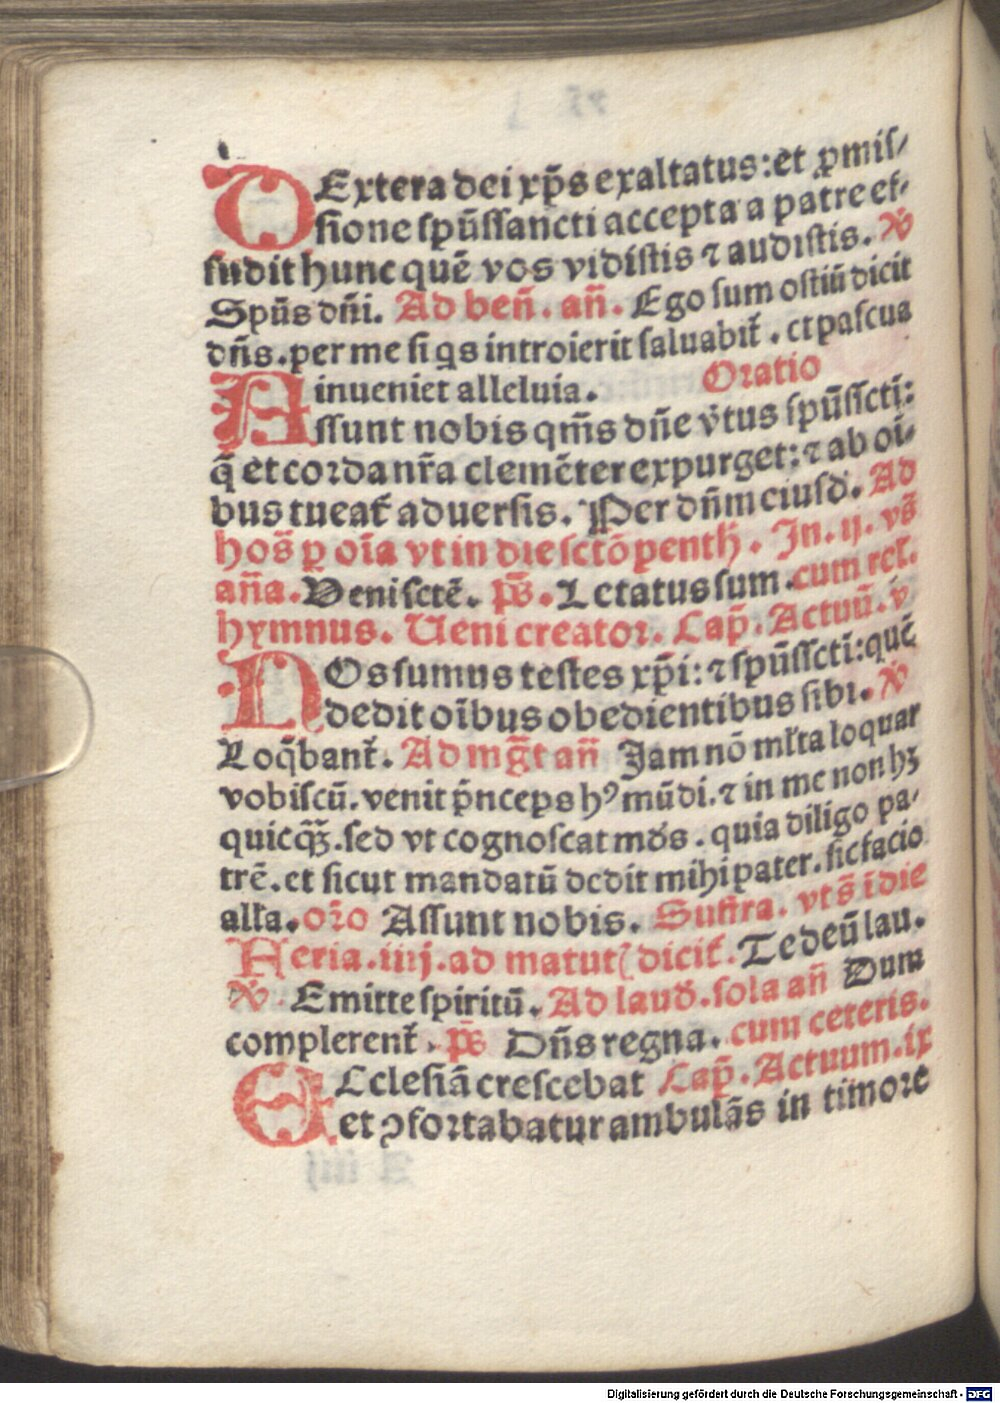 DExtera dei xp̄s exaltatus: et ꝓmiſ⸗
ſione ſpūſſancti accepta a patre ef⸗
fudit hunc quē vos vidiſtis ⁊ audiſtis. V̾
Spūs dn̄i. Ad ben̄. an̄. Ego ſum oſtiū dicit
dn̄s. per me ſi qs introierit ſaluabit̄. et paſcua
inueniet alleluia. Oratio
Aſſunt nobis qm̄s dn̄e v̾tus ſpūſſcti̅:
q̄ et corda nr̄a clemēter expurget: ⁊ ab oi̅⸗
bus tueat̄ aduerſis. Per dn̄m eiuſd̄. Ad
hos̄ ꝑ oi̅a vt in die ſctō penth̄. In. ij. vs̄
an̄a. Veni ſctē. ps̄. Letatus ſum. cum rel̄.
hymnus. Veni creator. Cap̄. Actuū. v
NOs ſumus teſtes xp̄i: ⁊ ſpūſſcti̅: quē
dedit oi̅bus obedientibus ſibi. V̾
Loq̄bant̄. Ad mg̅t an̄ Jam nō ml̄ta loquar
vobiſcū. venit p̄nceps hꝰ mūdi. ⁊ in me non hꝫ
quicq̄ꝫ. ſed vt cognoſcat mūs. quia diligo pa⸗
trē. et ſicut mandatū dedit mihi pater. ſic facio
all̄a. or̄o Aſſunt nobis. Suffra. vt s̄ i̅ die
Feria. iiij. ad matut̄ dicit̄. Te deū lau.
V̾ Emitte ſpiritū. Ad laud̄. ſola an̄ Dum
complerent̄. ps̄ Dn̄s regna. cum ceteris.
ECcleſiā creſcebat Cap̄. Actuum. ix
et ꝯfortabatur ambulās in timore
Digitalisierung gefördert durch die Deutsche Forschungsgemeinschaft - DFG